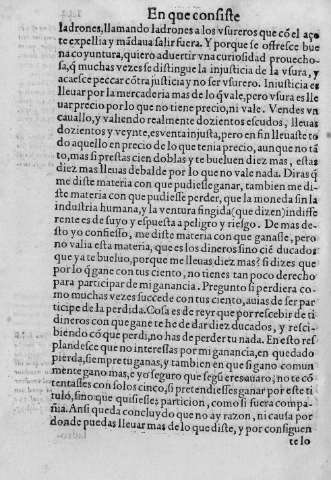 En que consiste
ladrones, llamando ladrones a los vsureros que cō el aço
te expellia y mādaua salir fuera. Y porque se ofresce bue
na coyuntura, quiero aduertir vna curiosidad prouecho-
sa, q̄ muchas vezes se distingue la injusticia de la vsura, y
acaesce peccar cōtra justicia y no ser vsurero. Iniusticia es
lleuar por la mercaderia mas de lo q̄ vale, pero vsura es lle
uar precio por lo que no tiene precio, ni vale. Vendes vn
cauallo, y valiendo realmente dozientos escudos, lleuas
dozientos y veynte, es venta injusta, pero en fin lleuaste to
do aquello en precio de lo que tenia precio, aunque no tā
to, mas si prestas cien doblas y te bueluen diez mas, estas
diez mas lleuas debalde por lo que no vale nada. Diras q̄
me diste materia con que pudiesse ganar, tambien me di-
ste materia con que pudiesse perder, que la moneda sin la
industria humana, y la ventura fingida (que dizen) indiffe
rente es de suyo y espuesta a peligro y riesgo. De mas de-
sto yo confiesso, me diste materia con que ganasse, pero
no valia esta materia, que es los dineros sino ciē ducados
que ya te bueluo, porque me lleuas diez mas? si dizes que
por lo q̄ gane con tus ciento, no tienes tan poco derecho
para participar de mi ganancia. Pregunto si perdiera co-
mo muchas vezes succede con tus ciento, auias de ser par
ticipe de la perdida. Cosa es de reyr que por rescebir de ti
dineros con que gane te he de dar diez ducados, y resci-
biendo cō que perdi, no has de perder tu nada. En esto res
plandesce que no interessas por mi ganancia, en quedado
pierda, siempre tu ganas, y tambien en que si gano comun
mente gano mas, e yo seguro que segū eres auaro, no te cō
tentasses con solos cinco, si pretendiesses ganar por este ti
tulo, sino que quisiesses particion, como si fuera compa-
ñia. Ansi queda concluydo que no ay razon, ni causa por
donde puedas lleuar mas de lo que diste, y por consiguen
te lo